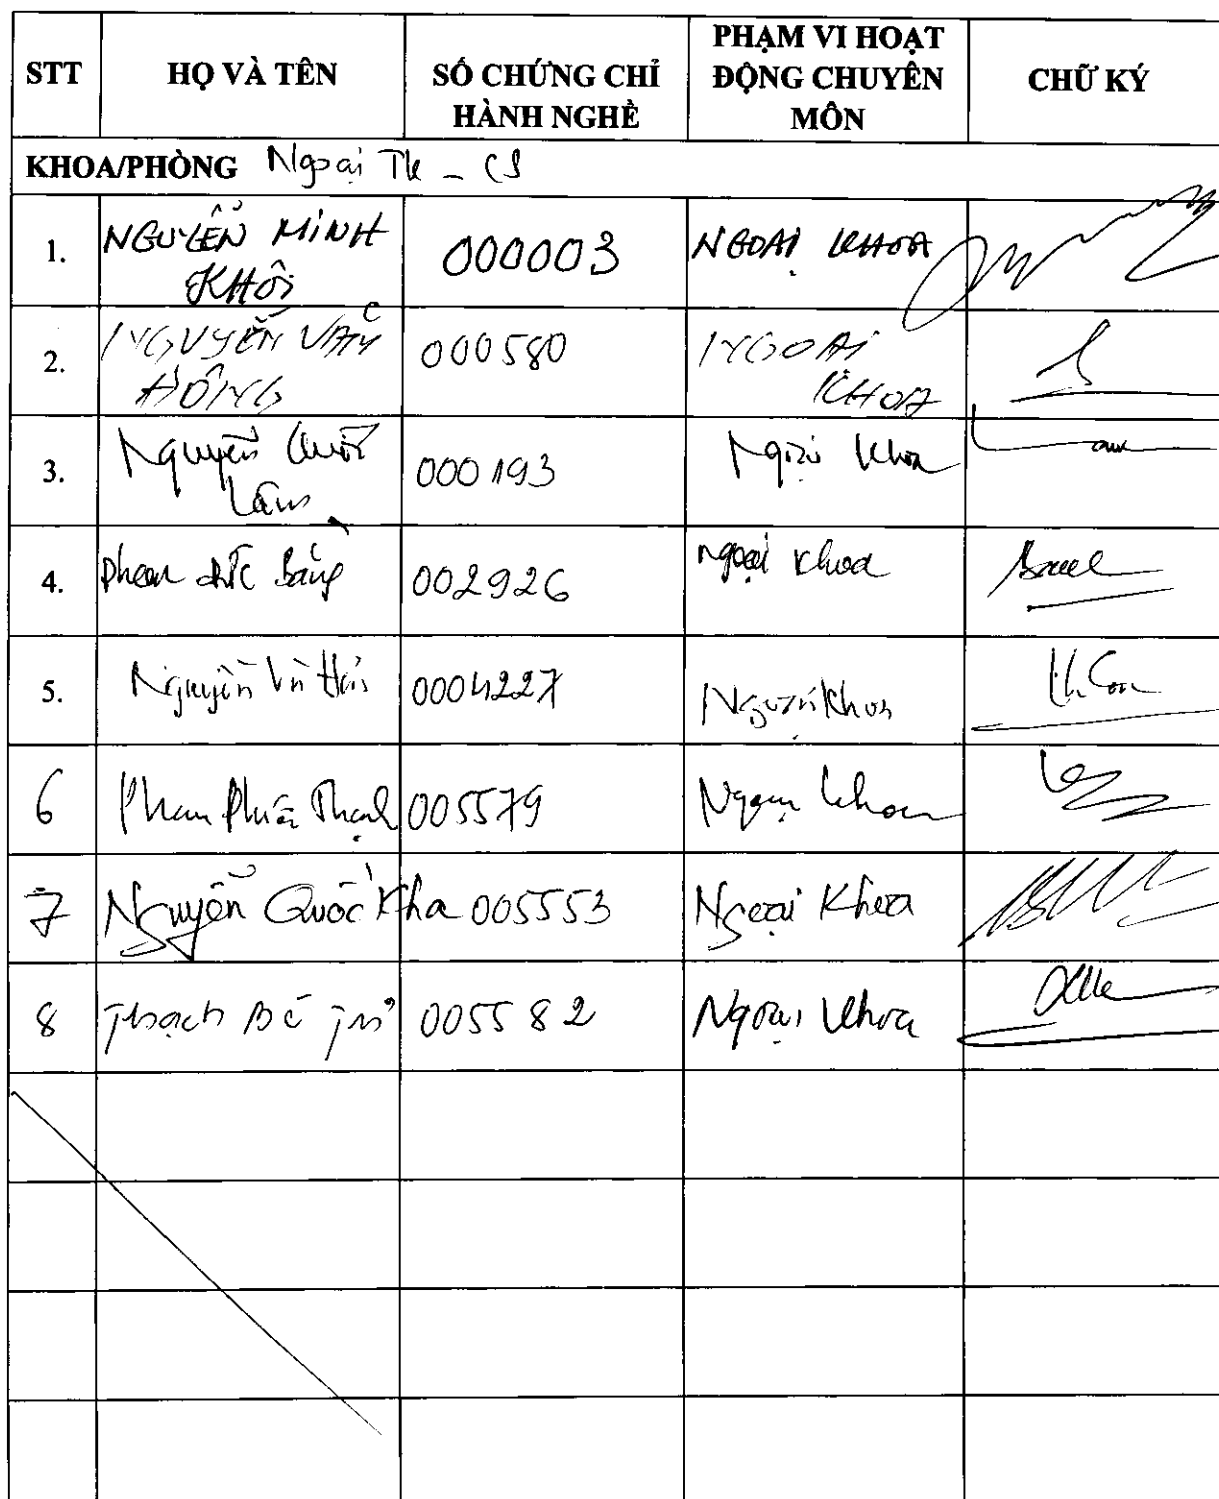 STT
HỌ VÀ TÊN
SỐ CHỨNG CHỈ
HÀNH NGHỀ
PHẠM VI HOẠT
ĐỘNG CHUYÊN
MÔN
CHỮ KÝ
KHOA/PHÒNG Ngoại TK - CS
1.
NGUYỄN MINH
KHÔI
000003
NGOẠI KHOA
2.
NGUYỄN VĂN
HỒNG
000580
NGOẠI
KHOA
3.
Nguyễn
Lâm
000193
Ngoại khoa
4.
Phan Đức Bằng
002926
ngoại khoa
5.
Nguyễn Văn
0004227
Ngoại khoa
6
Phan Thạnh
005579
Ngoại khoa
7
Nguyễn Quốc Kha
005553
Ngoại Khoa
8
Thạch Bé
005582
Ngoại khoa